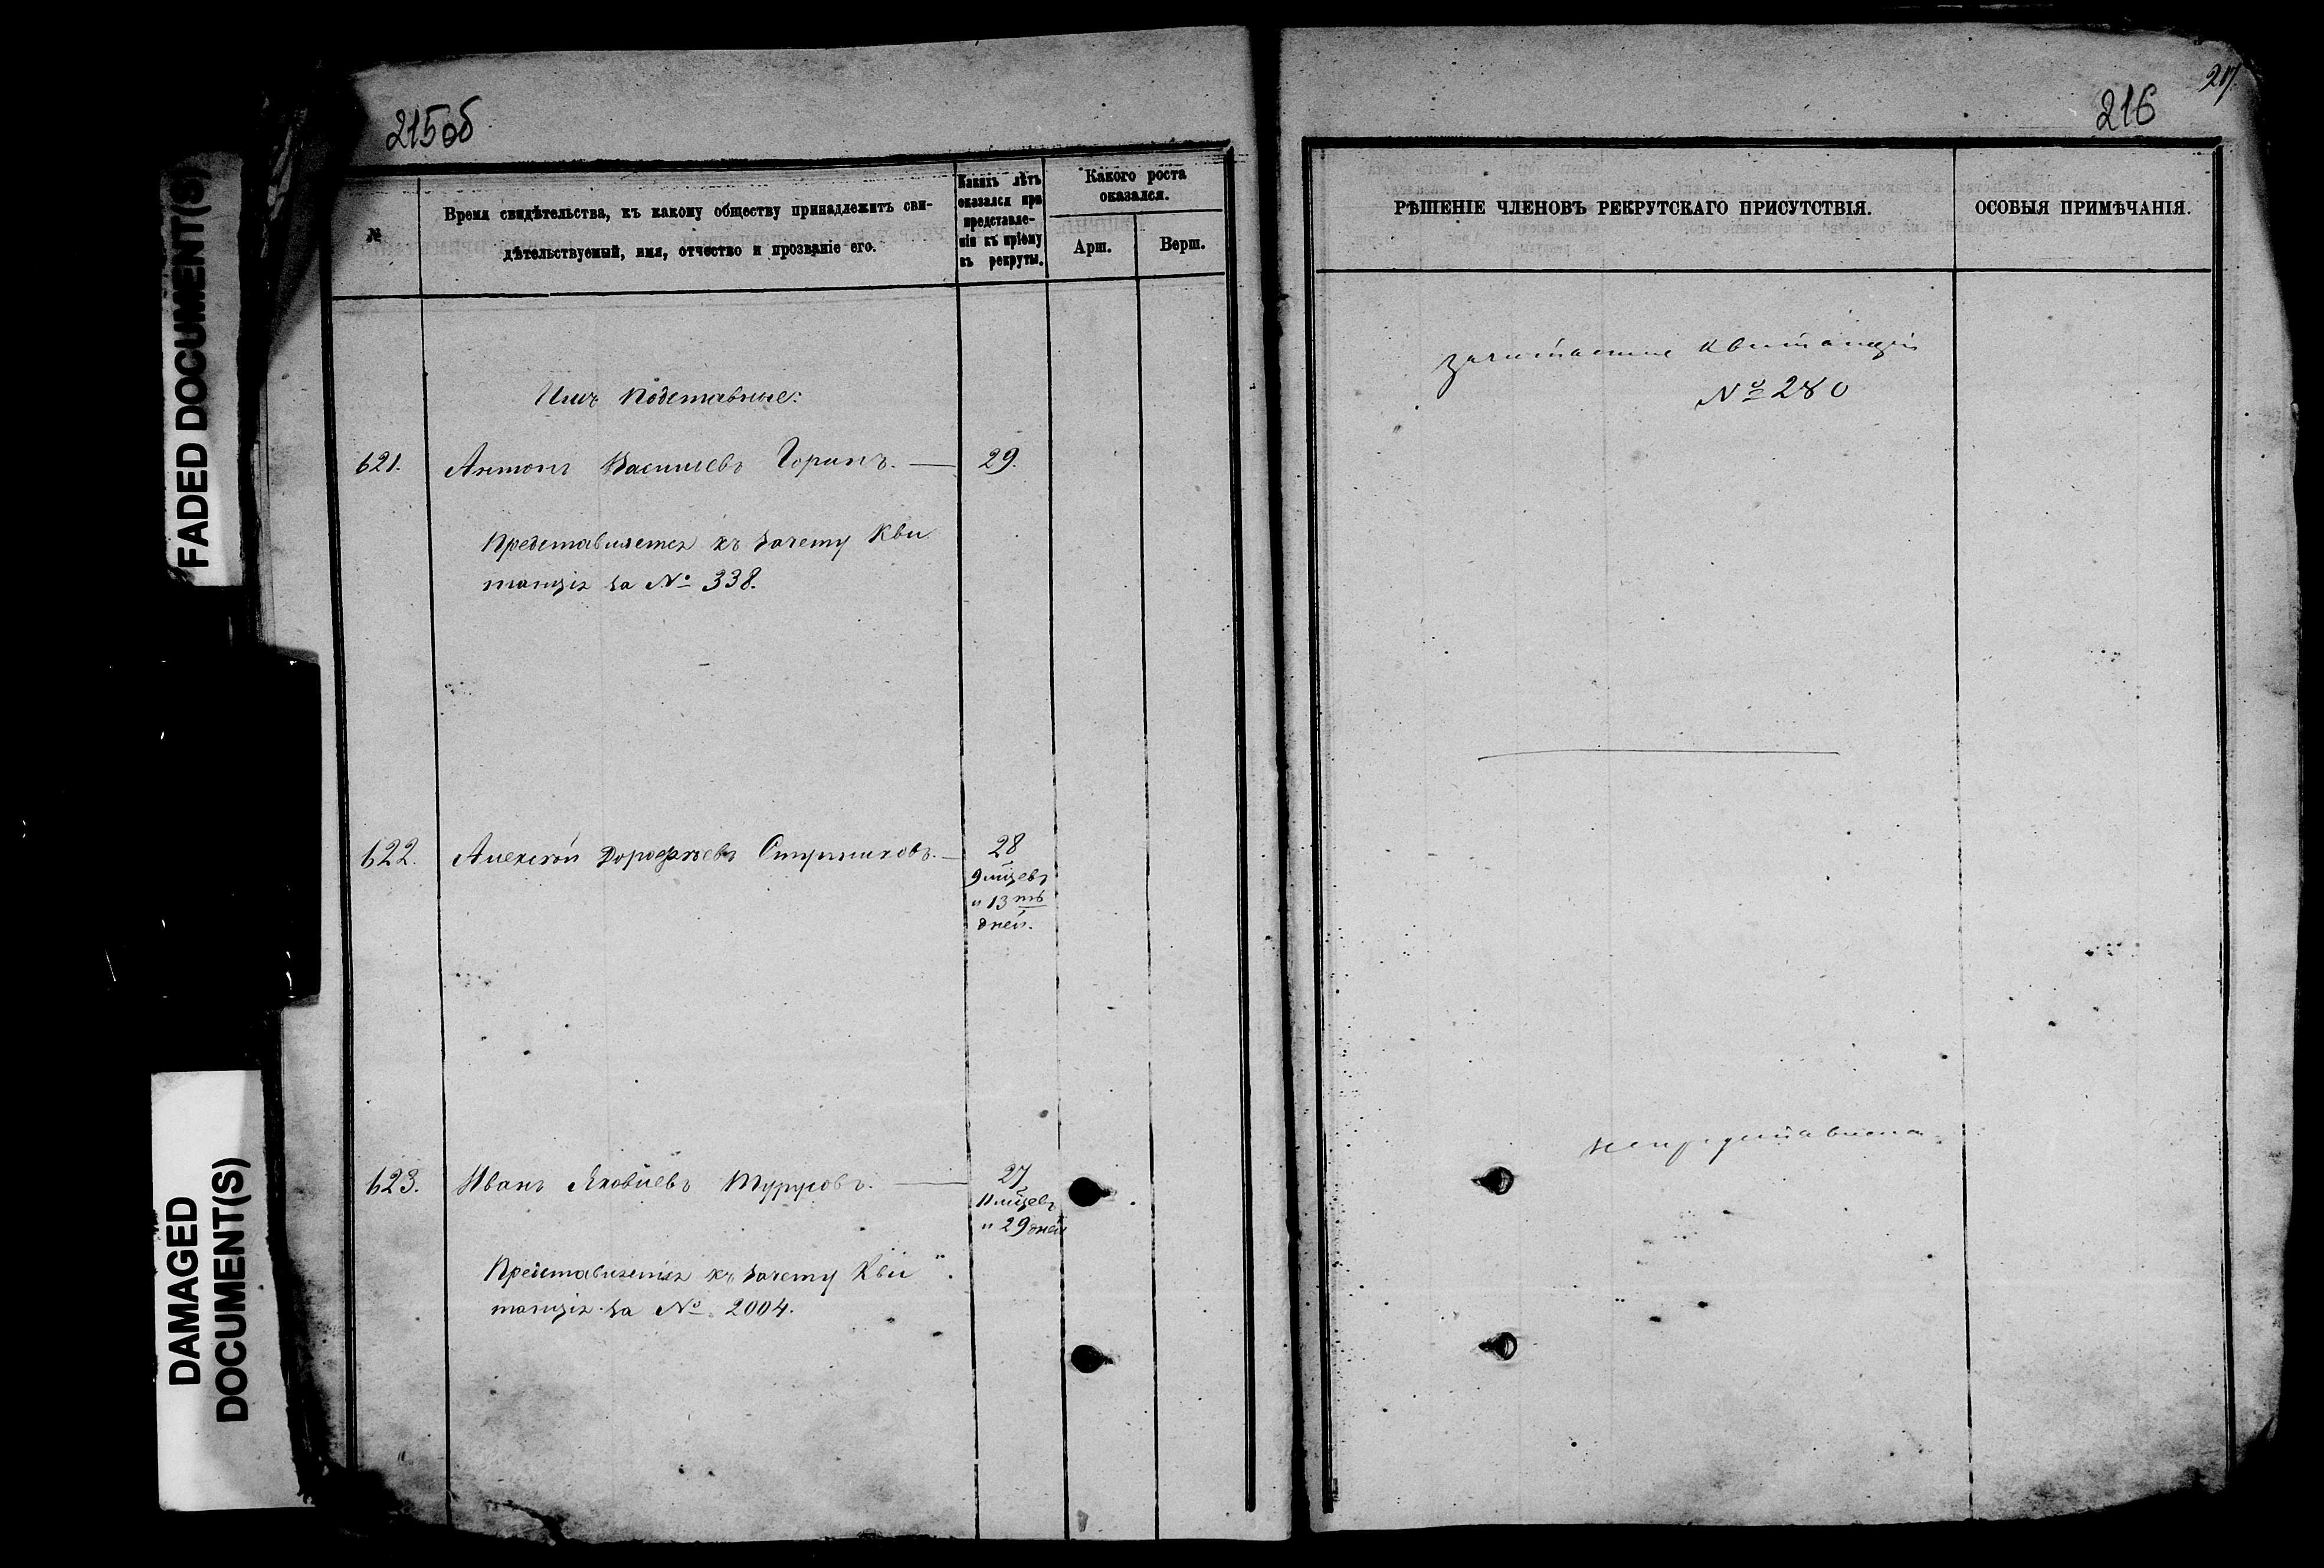 FADED DOCUMENT(S)
DAMAGED
DOCUMENT(S)
215об
№
Время свидѣтельства, къ какому обществу принадлежитъ сви-
дѣтельствуемый, имя, отчество и прозваніе его.
Какихъ лѣтъ
оказался при
представле-
ніи къ пріему
въ рекруты.
Какого роста
оказался.
Арш.
Верш.
Имъ подставные:
621. Антонъ Васильевъ Горинъ. — 29.
Представляется къ зачету Кви
танція за № 338.
622. Алексѣй Дорофѣевъ — 28
9 мцевъ
и 13ть
дней.
623. Иванъ Яковлевъ — 27
11 мцевъ
и 29 дней
Представляется къ зачету Кви
танція за № 2004.
217
216
РѢШЕНІЕ ЧЛЕНОВЪ РЕКРУТСКАГО ПРИСУТСТВІЯ.
ОСОБЫЯ ПРИМѢЧАНІЯ.
квитанція
№ 280
непредставлена